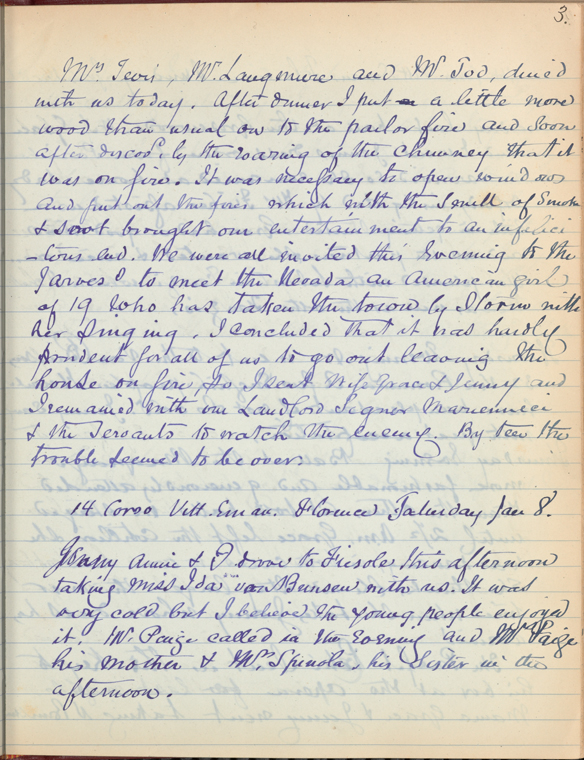 3.
Mrs Tevis, Mr. Langmere and Mr. Tod, dined
with us today. After dinner I put a little more
wood than usual on to the parlor fire and soon
after discod. by the roaring of the chimney that it
was on fire. It was necessary to open windows
and put out the fire which with the smell of smoke
& soot brought our entertainment to an infelici
-tous end. We were all invited this Evening to the
Jarves' to meet the Nevada an American girl
of 19 who has taken the town by storm with
her singing. I concluded that it was hardly
prudent for all of us to go out leaving the
house on fire so I sent Wife Grace & Jenny and
I remained with our Landlord Signor
& the servants to watch the enemy. By ten the
trouble seemed to be over.
14 Corso Vitt. Eman. Florence Saturday Jan 8.
Jenny Annie & I drove to Fiesole this afternoon
taking Miss Ida van Bunsen with us. It was
very cold but I believe the young people enjoyed
it. Mr. Paige called in the Evening and Mrs Paige
his mother & Mrs. Spinola, his Sister in the
afternoon.